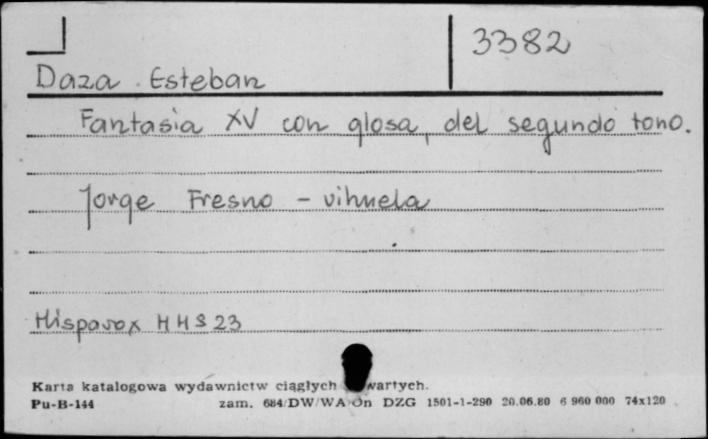 3382
Daza Esteban
Fantasia XV con glosa, del segundo tono.
Jorge Fresno - vihuela
Hispavox HHS 23
Karta katalogowa wydawnictw ciągłych wartych.
Pu-B-144 zam. 684/DW/WA/On DZG 1501-1-290 20.06.80 6 960 000 74x120